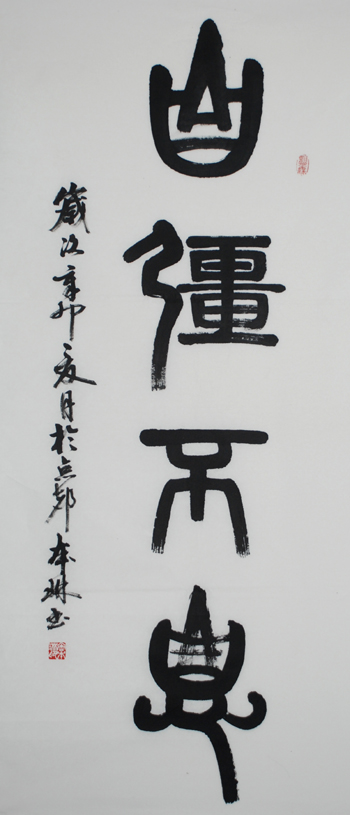 自彊不息
歲次辛卯夏月於京都本琳书